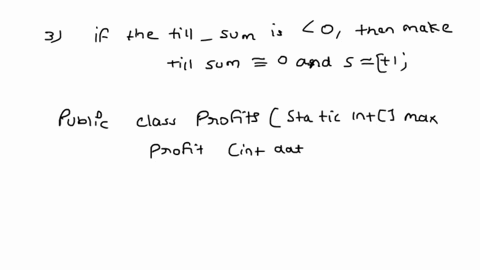 3) if the till_sum is <0, then make
till sum ≅ 0 and s ≃ [+1;
Public class Profits ( Static int[] max
Profit (int dat